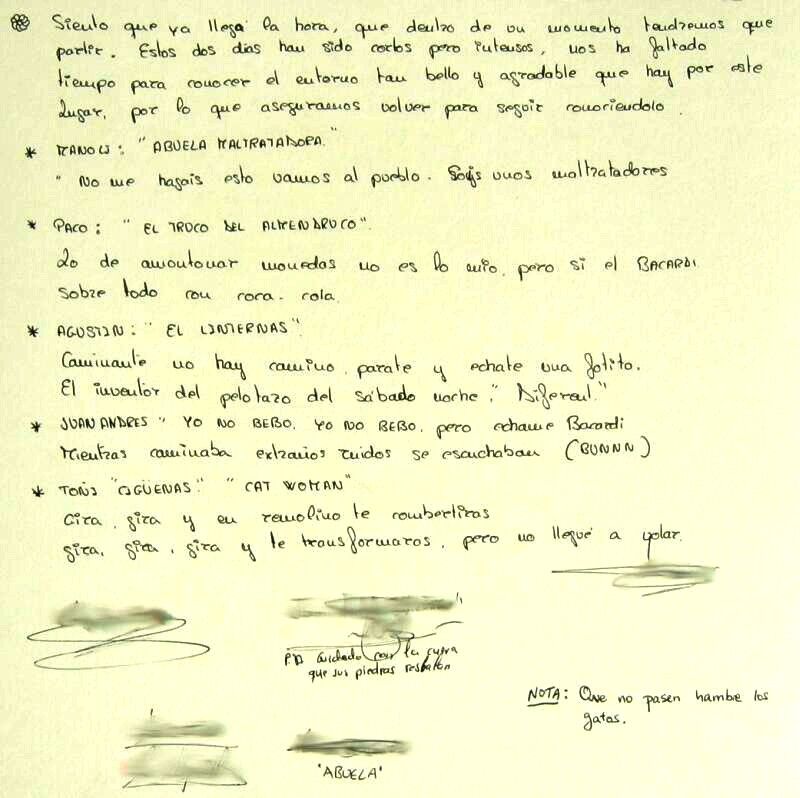 Siento que ya llega la hora, que dentro de un momento tendremos que
partir. Estos dos días han sido cortos pero intensos, nos ha faltado
tiempo para conocer el entorno tan bello y agradable que hay por este
lugar, por lo que aseguramos volver para seguir conociendolo.
* MANOLI: "ABUELA MALTRATADORA."
" No me hagais esto vamos al pueblo. Soys unos maltratadores
* PACO: "EL TROCO DEL ALMENDRUCO".
Lo de amontonar monedas no es lo mio, pero si el BACARDI.
Sobre todo con coca-cola.
* AGUSTIN: "EL LINTERNAS".
Caminante no hay camino, parate y echate una fotito.
El inventor del pelotazo del sábado noche,
* JUAN ANDRES " YO NO BEBO, YO NO BEBO, pero echame Bacardi
Mientras caminaba extraños ruidos se escuchaban (BUNNN)
* TOÑI "CIGÜEÑAS." "CAT WOMAN"
Gira, gira y en remolino te combertiras
gira, gira, gira y te transformaras, pero no llegué a volar.
P.D Cuidado con la
que sus piedras resbalan
NOTA: Que no pasen hambre los
gatos.
"ABUELA"